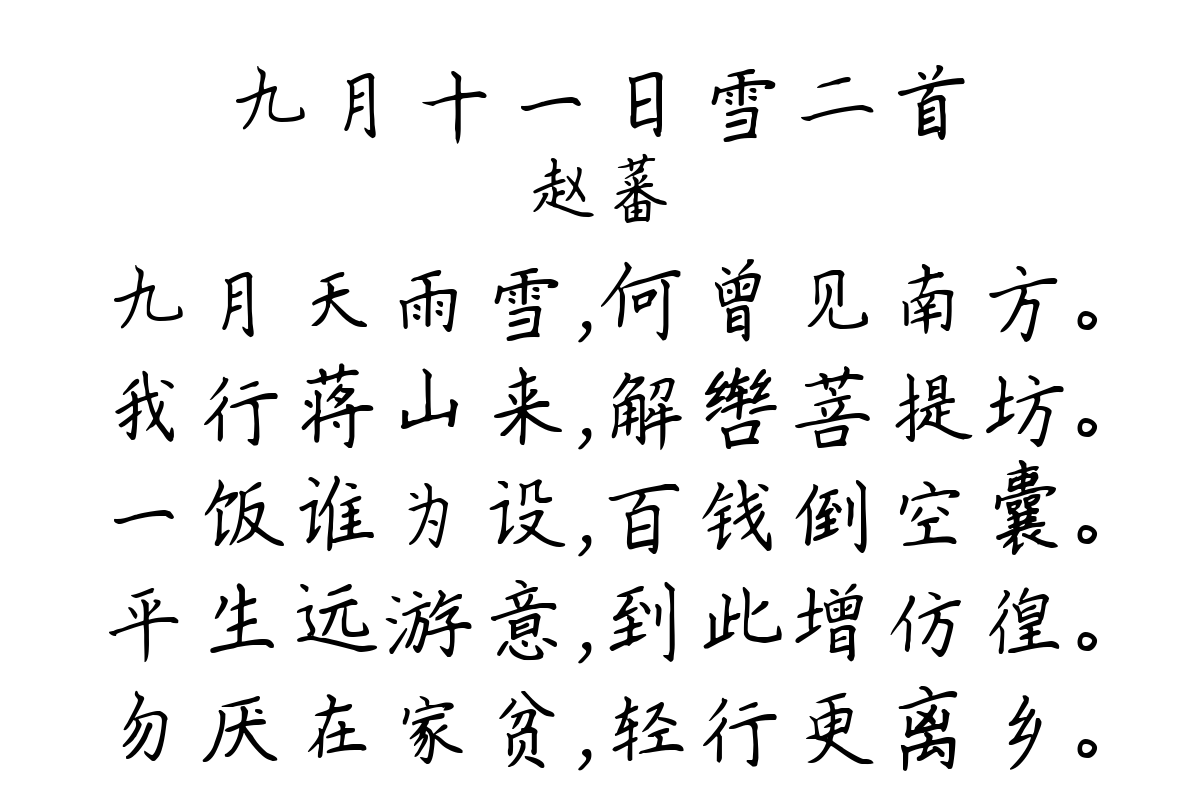 九月十一日雪二首
赵蕃
九月天雨雪,何曾见南方。
我行蒋山来,解辔菩提坊。
一饭谁为设,百钱倒空囊。
平生远游意,到此增仿徨。
勿厌在家贫,轻行更离乡。